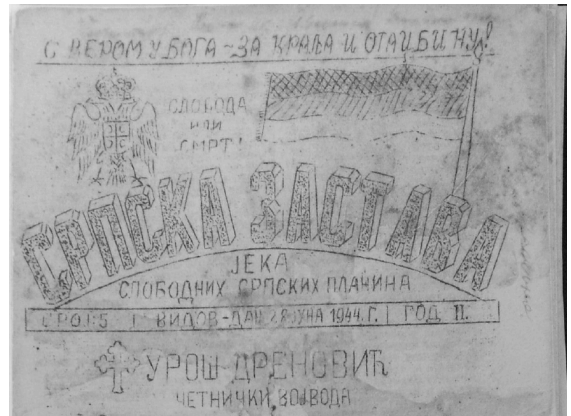 С ВЕРОМ У БОГА - ЗА КРАЉА И ОТАЏБИНУ!
СЛОБОДА
ИЛИ
СМРТ!
СРПСКА ЗАСТАВА
ЈЕКА
СЛОБОДНИХ СРПСКИХ ПЛАНИНА
БРОЈ:5 ВИДОВ-ДАН 28 ЈУНА 1944. Г. ГОД. II.
УРОШ ДРЕНОВИЋ
ЧЕТНИЧКИ ВОЈВОДА